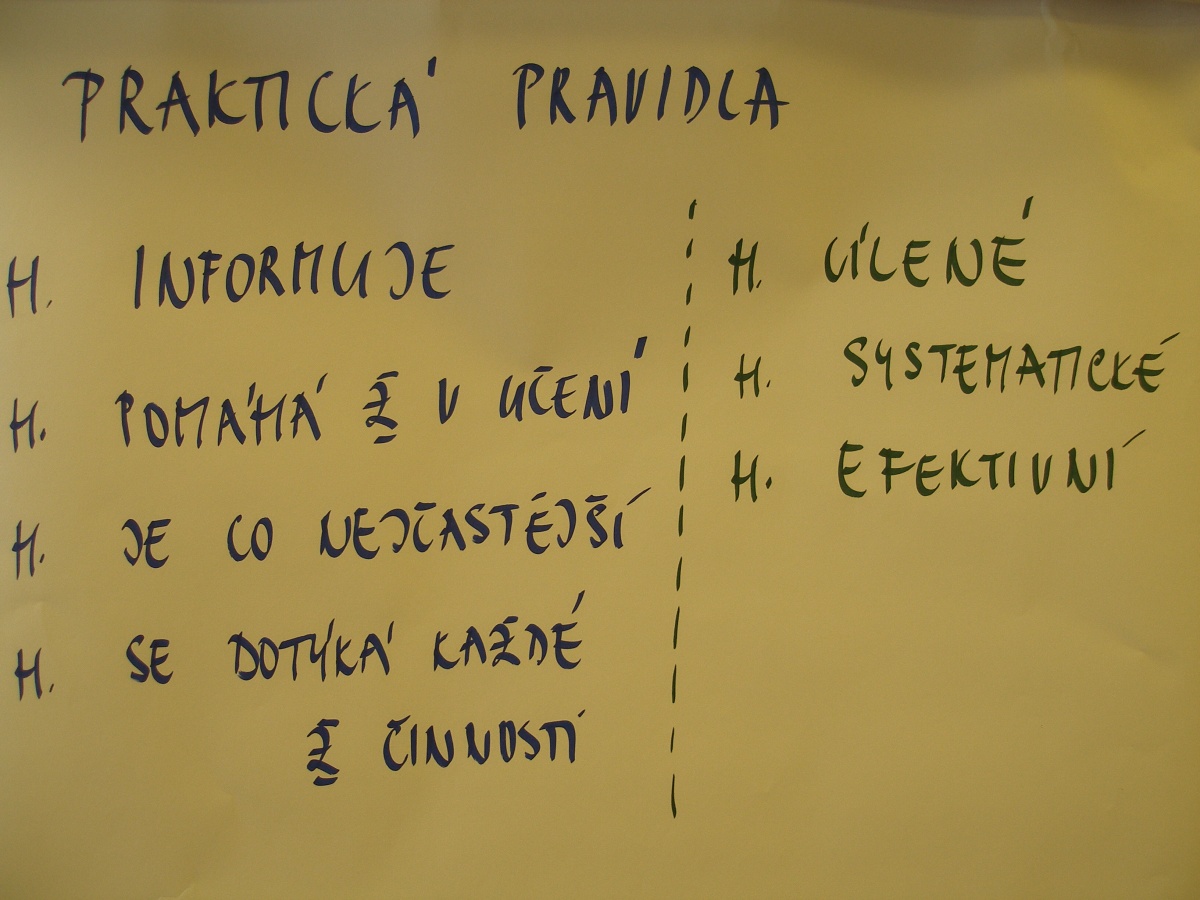 PRAKTICKÁ PRAVIDLA
H. INFORMUJE
H. POMÁHÁ Ž V UČENÍ
H. JE CO NEJČASTĚJŠÍ
H. SE DOTÝKÁ KAŽDÉ
Ž ČINNOSTI
H. CÍLENÉ
H. SYSTEMATICKÉ
H. EFEKTIVNÍ